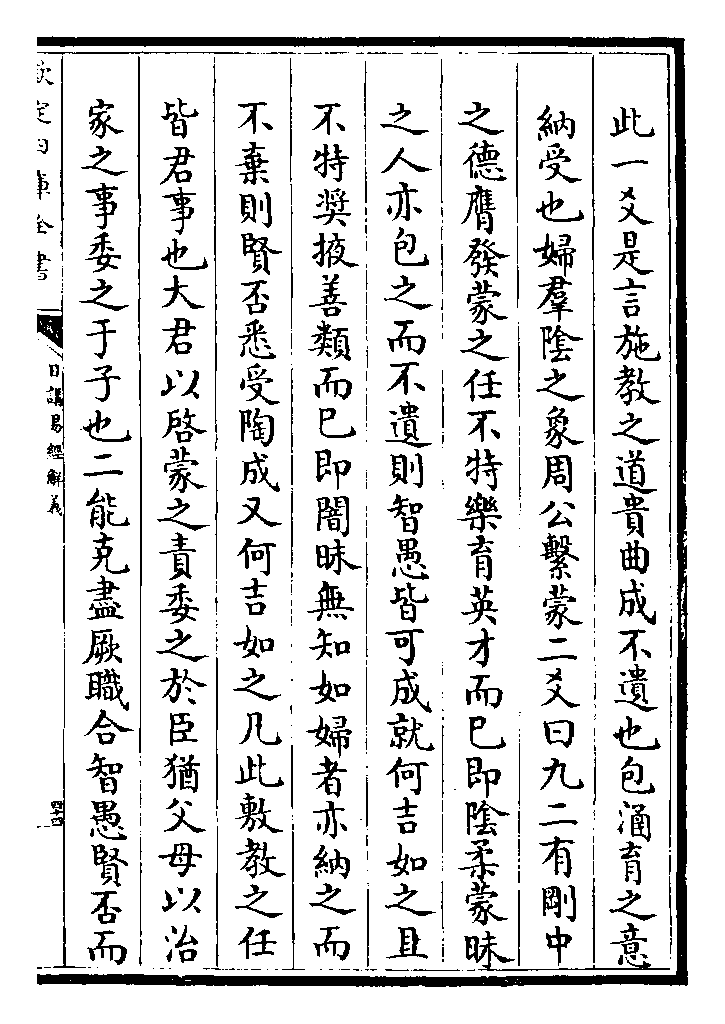 此一爻是言施教之道貴曲成不遺也包涵育之意
納受也婦羣陰之象周公繫蒙二爻曰九二有剛中
之德膺發蒙之任不特樂育英才而巳即陰柔蒙昧
之人亦包之而不遺則智愚皆可成就何吉如之且
不特奬掖善類而巳即闇昧無知如婦者亦納之而
不棄則賢否悉受陶成又何吉如之凡此敷教之任
皆君事也大君以啓蒙之責委之於臣猶父母以治
家之事委之于子也二能克盡厥職合智愚賢否而
欽定四庫全書
日講易經解義
四十四